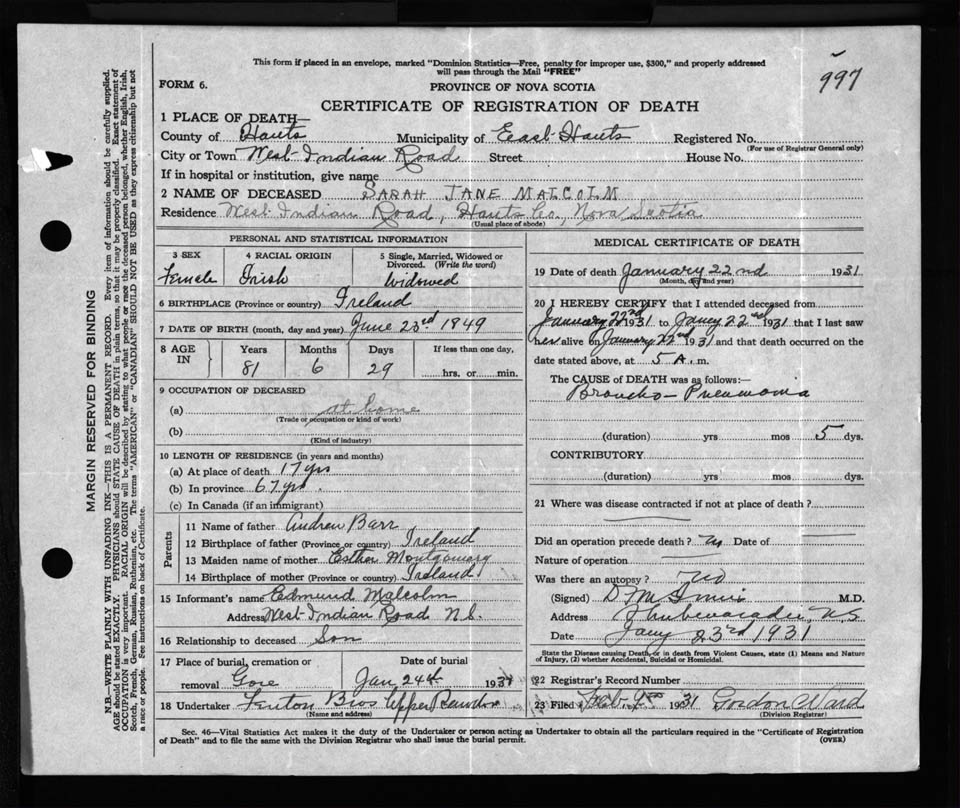 This form if placed in an envelope, marked "Dominion Statistics—Free, penalty for improper use, $300," and properly addressed
will pass through the Mail "FREE"
997
FORM 6.
PROVINCE OF NOVA SCOTIA
CERTIFICATE OF REGISTRATION OF DEATH
1 PLACE OF DEATH—
County of Hants Municipality of East Hants Registered No.
(For use of Registrar General only)
City or Town West Indian Road Street House No.
If in hospital or institution, give name
2 NAME OF DECEASED SARAH JANE MALCOLM
Residence West Indian Road, Hants Co., Nova Scotia
(Usual place of abode)
PERSONAL AND STATISTICAL INFORMATION
3 SEX 4 RACIAL ORIGIN 5 Single, Married, Widowed or
Divorced. (Write the word)
Female Irish Widowed
6 BIRTHPLACE (Province or country) Ireland
7 DATE OF BIRTH (month, day and year) June 23rd 1849
8 AGE IN Years Months Days If less than one day,
81 6 29 hrs. or min.
9 OCCUPATION OF DECEASED
(a) at home
(Trade or occupation or kind of work)
(b)
(Kind of industry)
10 LENGTH OF RESIDENCE (in years and months)
(a) At place of death 17 yrs
(b) In province 67 yrs.
(c) In Canada (if an immigrant)
Parents
11 Name of father Andrew Barr
12 Birthplace of father (Province or country) Ireland
13 Maiden name of mother Esther Montgomery
14 Birthplace of mother (Province or country) Ireland
15 Informant's name Edmund Malcolm
Address West Indian Road N.S.
16 Relationship to deceased Son
17 Place of burial, cremation or removal Gore
Date of burial Jan 24th 1931
18 Undertaker Fenton Bros Upper Rawdon
(Name and address)
MEDICAL CERTIFICATE OF DEATH
19 Date of death January 22nd 1931
(Month, day and year)
20 I HEREBY CERTIFY that I attended deceased from
January 22nd 1931 to Jany 22nd 1931 that I last saw
her alive on January 22nd 1931 and that death occurred on the
date stated above, at 5 A. m.
The CAUSE OF DEATH was as follows:—
Broncho-Pneumonia
(duration) yrs mos 5 dys.
CONTRIBUTORY
(duration) yrs mos dys.
21 Where was disease contracted if not at place of death?
Did an operation precede death? Date of
Nature of operation
Was there an autopsy? no
(Signed) M.D.
Address Shubenacadie, N.S.
Date Jany 23rd 1931
State the Disease causing Death, or in death from Violent Causes, state (1) Means and Nature
of Injury, (2) whether Accidental, Suicidal or Homicidal.
22 Registrar's Record Number
23 Filed Feb. 1931 Gordon Ward
(Division Registrar)
Sec. 46—Vital Statistics Act makes it the duty of the Undertaker or person acting as Undertaker to obtain all the particulars required in the "Certificate of Registration
of Death" and to file the same with the Division Registrar who shall issue the burial permit.
(OVER)
MARGIN RESERVED FOR BINDING
N.B.—WRITE PLAINLY WITH UNFADING INK—THIS IS A PERMANENT RECORD. Every item of information should be carefully supplied.
AGE should be stated EXACTLY. PHYSICIANS should STATE CAUSE OF DEATH in plain terms, so that it may be properly classified. Exact statement of
OCCUPATION is very important. RACIAL ORIGIN will be described by stating to what people or race the deceased person belonged, whether English, Irish,
Scotch, French, German, Russian, Ruthenian, etc. The terms "AMERICAN" or "CANADIAN" SHOULD NOT BE USED as they express citizenship but not
a race or people. See instructions on back of Certificate.